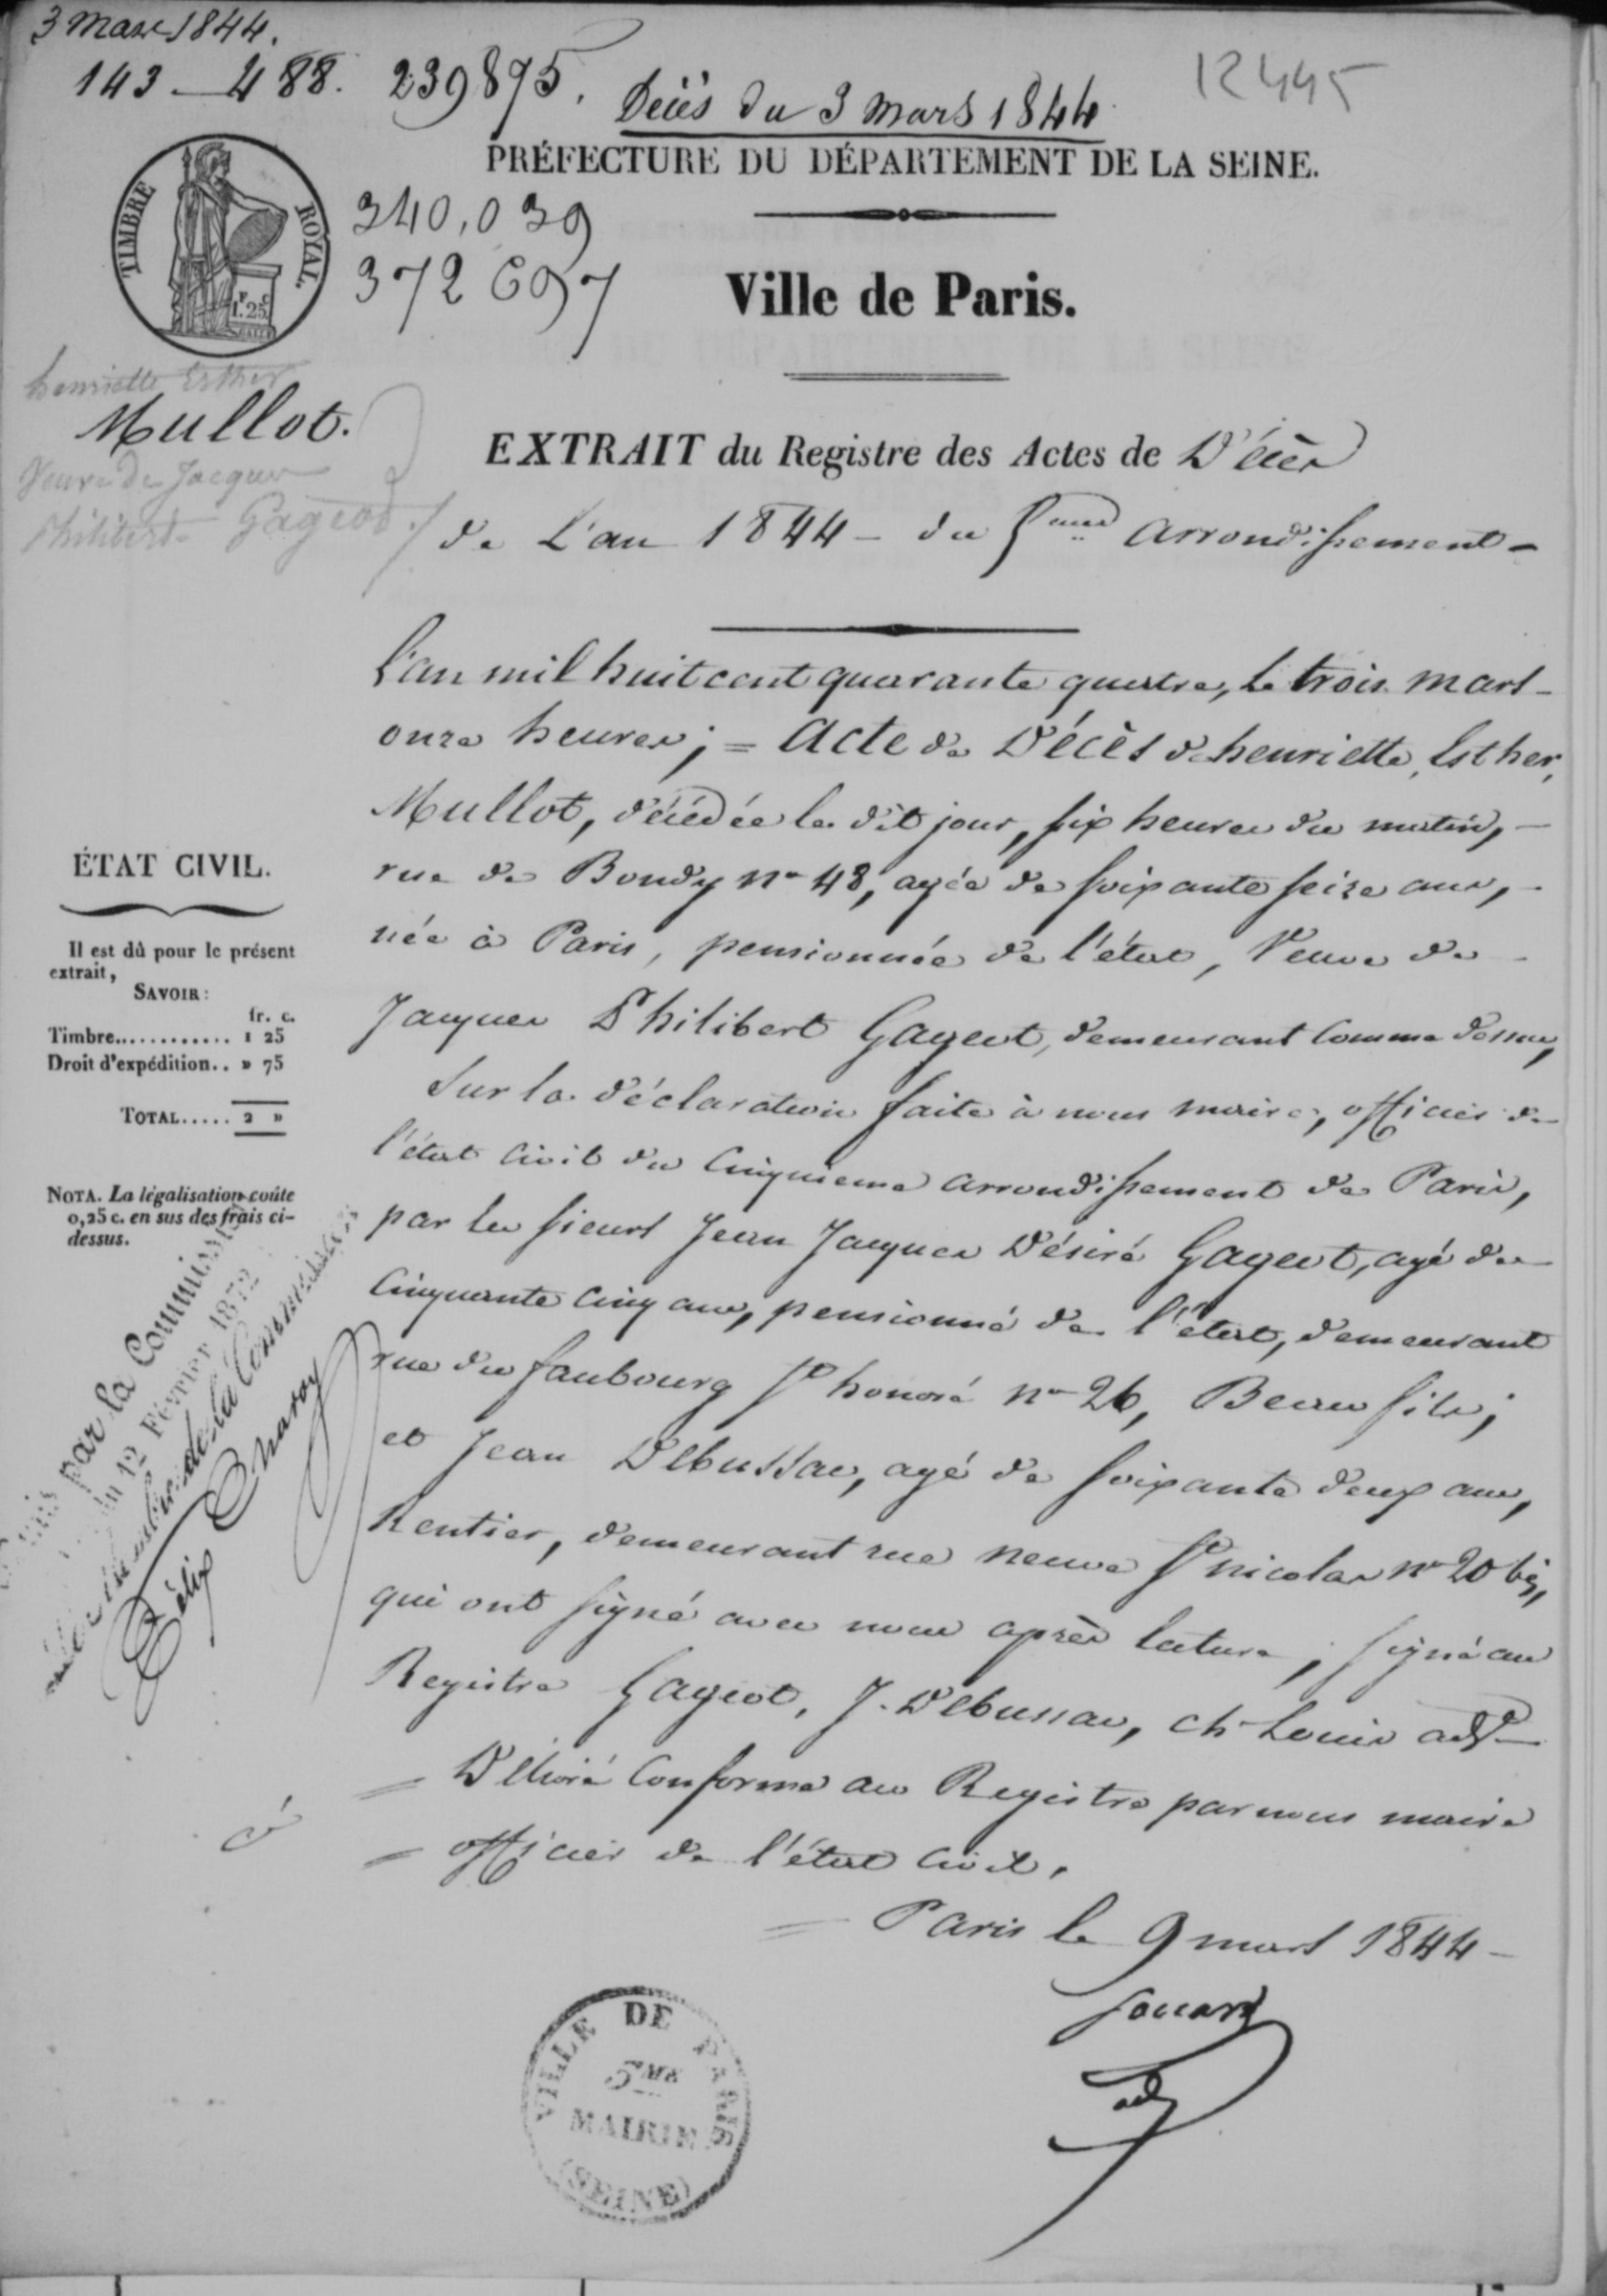 3 Mars 1844.
143 - 488. 239875. Décès du 3 mars 1844 12445
PRÉFECTURE DU DÉPARTEMENT DE LA SEINE.
TIMBRE ROYAL.
F. C.
1.25
340,039
372 697
Ville de Paris.
henriette Esther
Mullot.
Veuve de Jacques
Philibert Gageot
EXTRAIT du Registre des Actes de Décès
de L'an 1844 - du 5eme arrondissement -
L'an mil huit cent quarante quatre, le trois mars -
onze heures; = Acte de Décès de henriette, Esther,
Mullot, décédée le dit jour, six heures du matin, -
rue de Bondy no 48, agée de soixante seize ans, -
née à Paris, pensionnée de l'état, Veuve de -
Jacques Philibert Gageot, demeurant comme dessus,
Sur la déclaration faite à nous maire, officier de
l'état civil du Cinquieme arrondissement de Paris,
par les sieurs Jean Jacques Désiré Gageot, agé de
Cinquante cinq ans, pensionné de l'état, demeurant
rue du faubourg St honoré no 26, Beau fils;
et Jean Debussac, agé de soixante deux ans,
Rentier, demeurant rue neuve St nicolas no 20 bis,
qui ont signé avec nous après lecture; signé au
Registre Gageot, J. Debussac, ch. Louis adt
= Délivré Conforme au Registre par nous maire
= officier de l'état civil.
= Paris le 9 mars 1844 -
adj
ÉTAT CIVIL.
Il est dû pour le présent
extrait,
SAVOIR:
fr. c.
Timbre............ 1 25
Droit d'expédition.. » 75
TOTAL..... 2 »
NOTA. La légalisation coûte
0,25 c. en sus des frais ci-
dessus.
par la Commission
12 Février 1872
de la Commission
Félix Charoy
VILLE DE PARIS
5ME
MAIRIE
(SEINE)